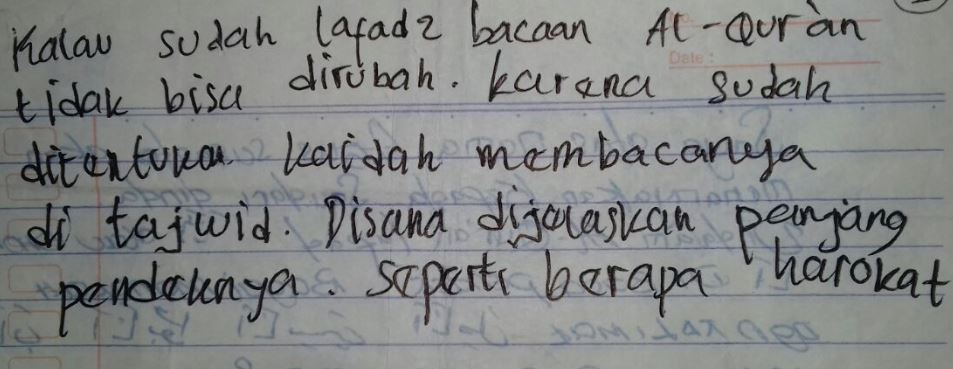 Kalau sudah lafadz bacaan Al-Qur'an
Date :
tidak bisa dirubah. karena sudah
ditentukan kaidah membacanya
di tajwid. Disana dijelaskan panjang
pendeknya. seperti berapa harokat